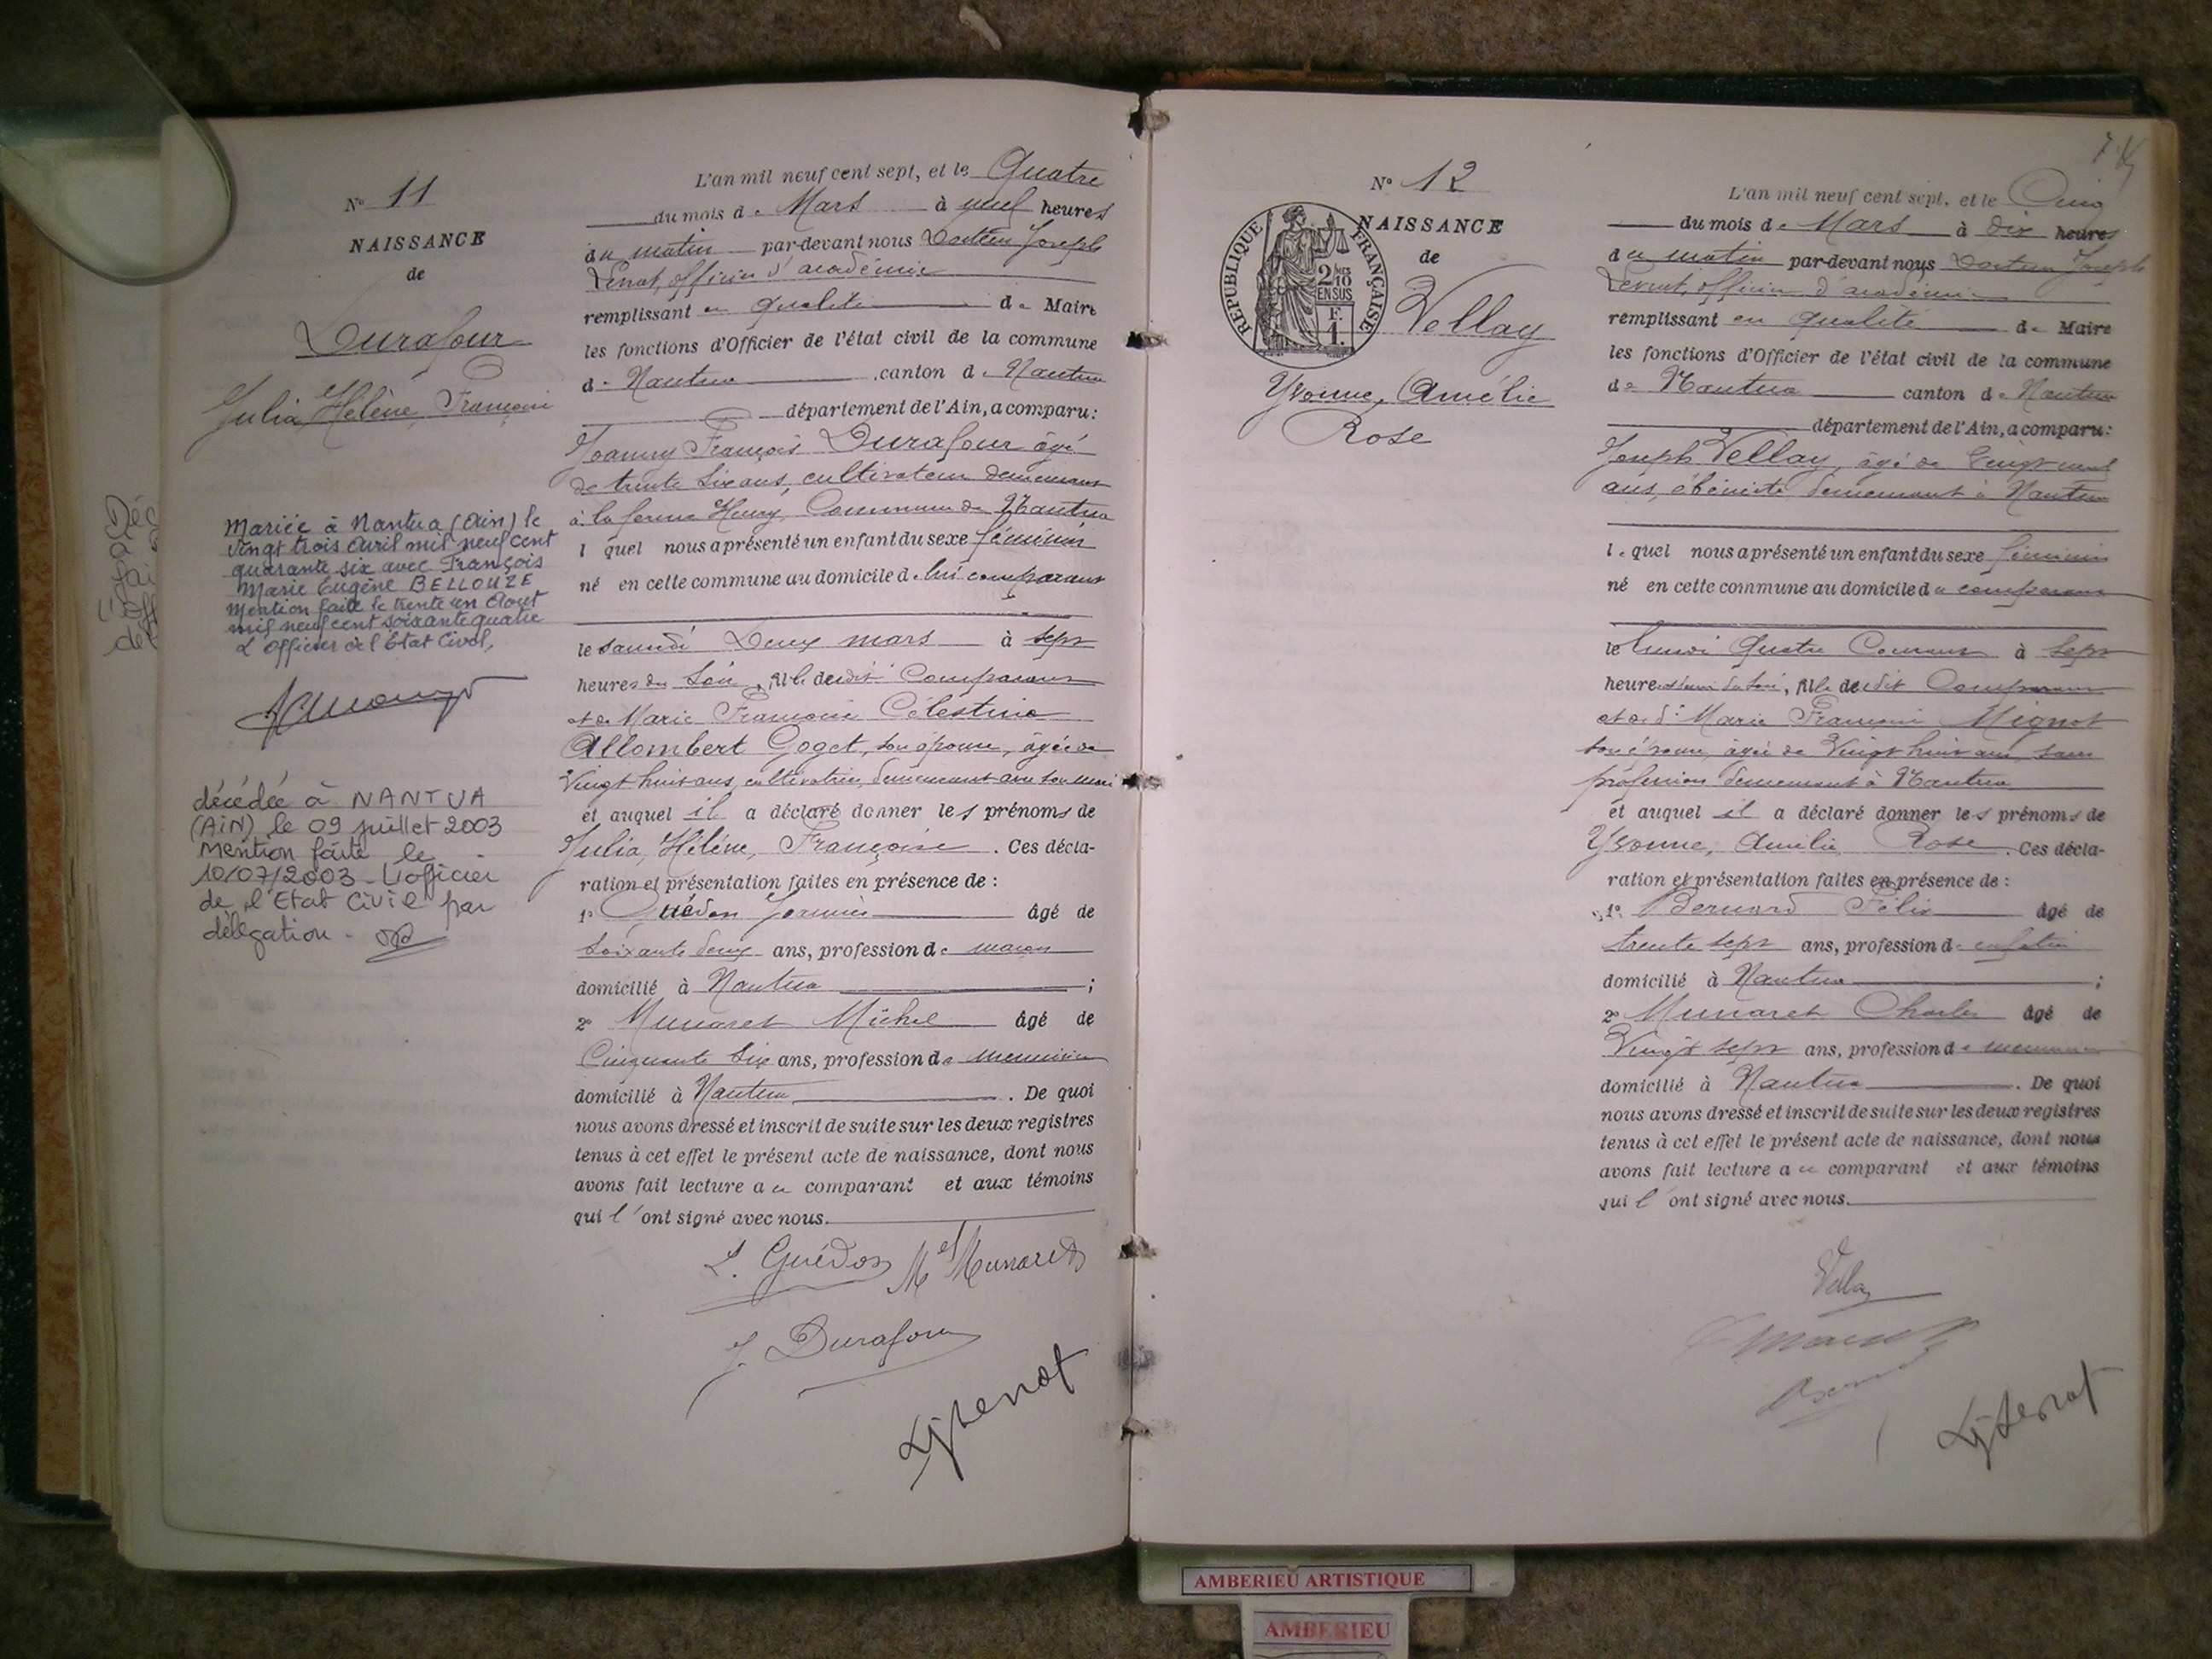 N° 11
NAISSANCE
de
Durafour
Julia Hélène Françoise
Mariée à Nantua (Ain) le
vingt trois avril mil neuf cent
quarante six avec François
Marie Eugène BELLOUZE
Mention faite le trente un Aout
mil neuf cent soixante quatre
L'officier de l'Etat Civil,
décédée à NANTUA
(AiN) le 09 juillet 2003
Mention faite le
10/07/2003 - L'officier
de l'Etat Civil par
délégation -
L'an mil neuf cent sept, et le Quatre
du mois de Mars à neuf heures
du matin par-devant nous Docteur Joseph
officier d'académie
remplissant en qualité de Maire
les fonctions d'Officier de l'état civil de la commune
de Nantua canton de Nantua
département de l'Ain, a comparu:
Joanny François Durafour âgé
de trente six ans, cultivateur demeurant
à la ferme Henry, Commune de Nantua
lequel nous a présenté un enfant du sexe féminin
né en cette commune au domicile de lui comparant
le samedi Deux mars à sept
heures du soir, fille dudit Comparant
et de Marie Françoise Célestine
Allombert Goget, son épouse, âgée de
vingt huit ans, cultivatrice, demeurant avec son mari
et auquel il a déclaré donner les prénoms de
Julia, Hélène, Françoise. Ces décla-
ration et présentation faites en présence de :
1° Guédon âgé de
soixante deux ans, profession de maçon
domicilié à Nantua ;
2° Munaret Michel âgé de
Cinquante six ans, profession de menuisier
domicilié à Nantua. De quoi
nous avons dressé et inscrit de suite sur les deux registres
tenus à cet effet le présent acte de naissance, dont nous
avons fait lecture au comparant et aux témoins
qui l'ont signé avec nous.
L. Guédon Mel Munaret
J. Durafour
N° 12
NAISSANCE
de
RÉPUBLIQUE FRANÇAISE
2/10 EN SUS
F. 1.
Vellay
Yvonne, Amélie
Rose
L'an mil neuf cent sept, et le Cinq
du mois de Mars à dix heures
du matin par-devant nous Docteur Joseph
officier d'académie
remplissant en qualité de Maire
les fonctions d'Officier de l'état civil de la commune
de Nantua canton de Nantua
département de l'Ain, a comparu:
Joseph Vellay, âgé de vingt neuf
ans, ébéniste demeurant à Nantua
lequel nous a présenté un enfant du sexe féminin
né en cette commune au domicile du comparant
le lundi Quatre Courant à sept
heures du soir, fille dudit Comparant
et de Marie Françoise Mignot
son épouse, âgée de vingt huit ans, sans
profession demeurant à Nantua
et auquel il a déclaré donner les prénoms de
Yvonne, Amélie Rose. Ces décla-
ration et présentation faites en présence de :
1° Bernard Félix âgé de
trente sept ans, profession de
domicilié à Nantua ;
2° Munaret Charles âgé de
Vingt sept ans, profession de menuisier
domicilié à Nantua. De quoi
nous avons dressé et inscrit de suite sur les deux registres
tenus à cet effet le présent acte de naissance, dont nous
avons fait lecture au comparant et aux témoins
qui l'ont signé avec nous.
AMBERIEU ARTISTIQUE
AMBERIEU